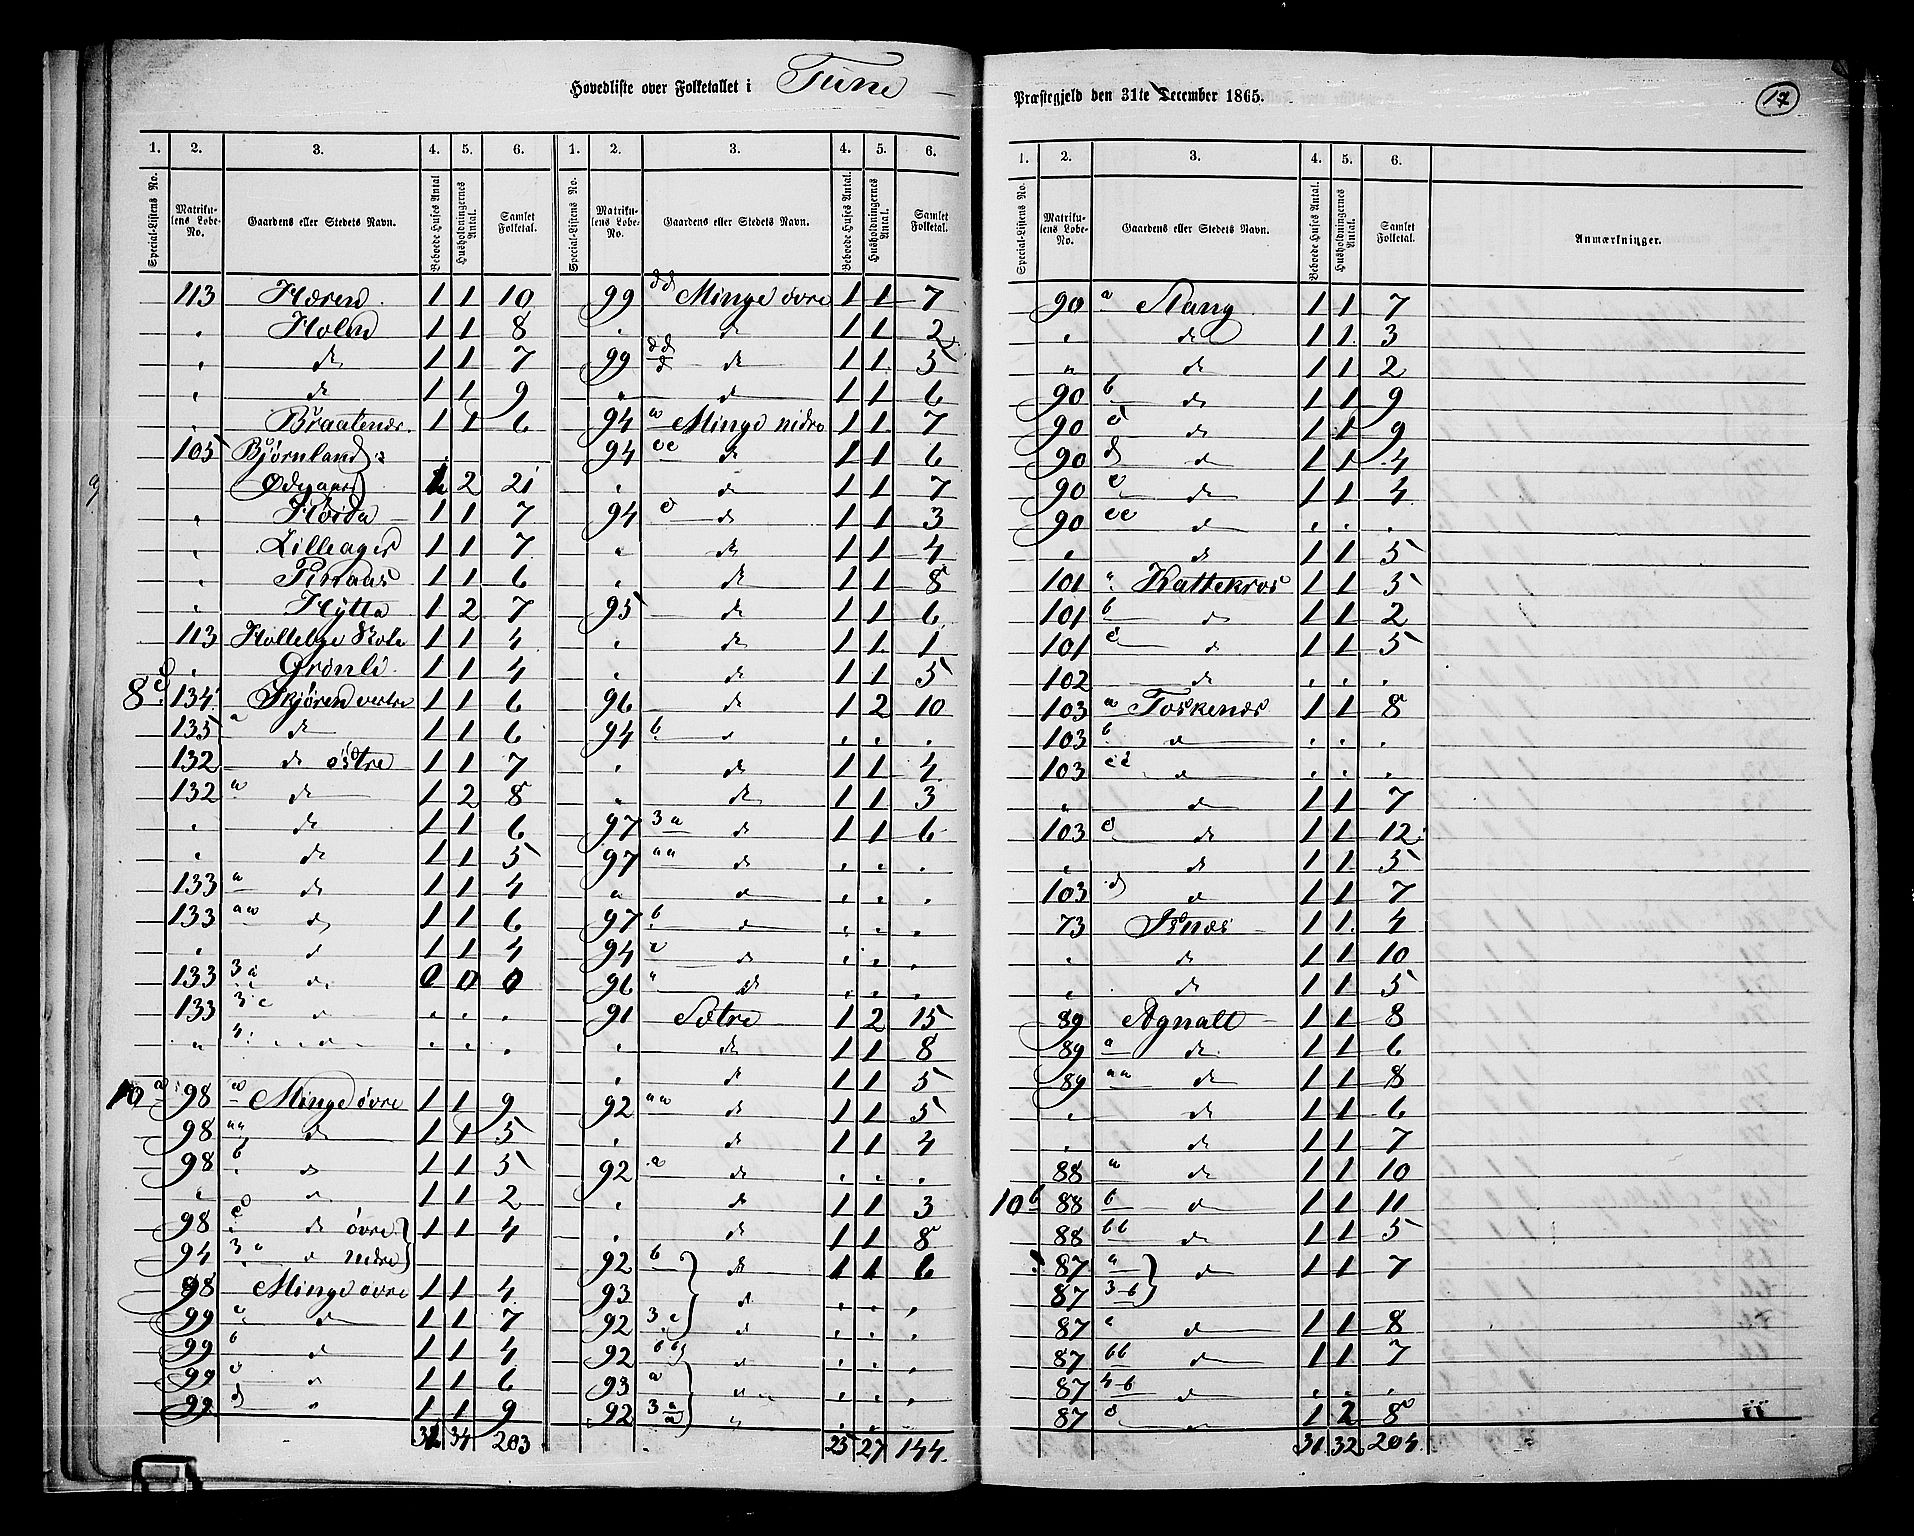 Hovedliste over Folketallet i Tune
Præstegjeld den 31te December 1865.
17
1. 2. 3. 4. 5. 6. 1. 2. 3. 4. 5. 6.
Special-Listens No. Matrikulens Løbe-No. Gaardens eller Stedets Navn. Beboede Huses Antal Husholdningernes Antal. Samlet Folketal. Special-Listens No. Matrikulens Løbe-No. Gaardens eller Stedets Navn. Beboede Huses Antal. Husholdningernes Antal. Samlet Folketal.
113 Haren 1 1 10
„ Holen 1 1 8
„ do 1 1 7
„ do 1 1 9
„ Braatenæs 1 1 6
105 Bjørnland
Ødegaard 1 2 21
„ Høida 1 1 7
„ Lilleager 1 1 7
„ 1 1 6
„ Hytta 1 2 7
113 Hollebye Skole 1 1 4
„ Grønli 1 1 4
8 c 134 Skjøren vestre 1 1 6
135 a do 1 1 6
132 do østre 1 1 7
132 a do 1 2 8
„ do 1 1 6
„ do 1 1 5
133 a do 1 1 4
133 aa do 1 1 6
„ do 1 1 4
133 3 a do 0 0 0
133 3 c do . . .
„ 4 do . . .
10 a 98 a Minge øvre 1 1 9
98 aa do 1 1 5
98 b do 1 1 5
„ do 1 1 2
98 c do øvre 1 1 4
94 3 a do nidre
98 Minge øvre 1 1 4
99 a do 1 1 7
99 b do 1 1 4
99 c do 1 1 6
99 d „ 1 1 9
31 34 203
99 dd Minge øvre 1 1 7
„ do 1 1 2
99 dd d do 1 1 5
„ do 1 1 6
94 a Minge nidre 1 1 7
94 cc do 1 1 6
„ do 1 1 7
94 c do 1 1 3
„ do 1 1 4
„ do 1 1 8
95 do 1 1 6
„ do 1 1 1
„ do 1 1 5
96 do 1 2 10
94 b do . . .
„ do 1 1 4
„ do 1 1 3
97 3 a do 1 1 6
97 aa do . . .
„ do . . .
97 b do . . .
94 do . . .
96 „ do . . .
91 Sætre 1 2 15
„ do 1 1 8
„ do 1 1 5
92 aa do 1 1 5
„ do 1 1 4
92 a do . . .
„ do 1 1 3
„ do 1 1 8
92 b do 1 1 6
93 do . . .
92 3 c do . . .
92 bb do . . .
93 a „ . . .
92 3 a a „ . .
25 27 144
1. 2. 3. 4. 5. 6.
Special-Listens No. Matrikulens Løbe-No. Gaardens eller Stedets Navn. Beboede Huses Antal. Husholdningernes Antal. Samlet Folketal. Anmærkninger.
90 a Stang 1 1 7
„ do 1 1 3
„ do 1 1 2
90 b do 1 1 9
90 c do 1 1 9
90 d do 1 1 4
90 e do 1 1 4
90 cc do . . .
„ do 1 1 5
101 Kattekros 1 1 5
101 b do 1 1 2
101 c do 1 1 5
102 do . . .
103 a Toskenæs 1 1 8
103 b do . . .
103 cc do . . .
„ do 1 1 7
103 c do 1 1 12
„ do 1 1 5
103 d do 1 1 7
73 Isnæs 1 1 4
„ do 1 1 10
„ do 1 1 5
89 Agnalt 1 1 8
89 a do 1 1 6
89 aa do 1 1 8
„ do 1 1 6
„ do 1 1 7
88 a do 1 1 10
10 b 88 b do 1 1 11
88 bb do 1 1 5
87 a do 1 1 7
87 3 b
87 do 1 1 8
87 bb do 1 1 7
87 4 b do . . .
87 c do 1 2 8
31 32 204